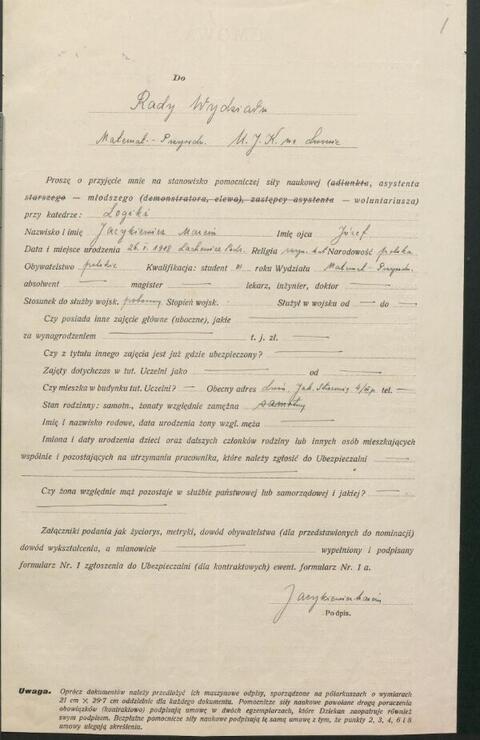 1
Do
Rady Wydziału
Matemat.-Przyrodn. U. J. K. we Lwowie
Proszę o przyjęcie mnie na stanowisko pomocniczej siły naukowej (adiunkta, asystenta
starszego — młodszego (demonstratora, elewa), zastępcy asystenta — woluntariusza)
przy katedrze: Logiki
Nazwisko i imię Jacykiewicz Marcin Imię ojca Józef
Data i miejsce urodzenia 26. I. 1918 Religia rzym. kat Narodowość polska
Obywatelstwo polskie Kwalifikacja: student III roku Wydziału Matemat-Przyrodn.
absolwent — magister — lekarz, inżynier, doktor —
Stosunek do służby wojsk. Stopień wojsk. Służył w wojsku od — do —
Czy posiada inne zajęcie główne (uboczne), jakie —
za wynagrodzeniem — t. j. zł. —
Czy z tytułu innego zajęcia jest już gdzie ubezpieczony? —
Zajęty dotychczas w tut. Uczelni jako — od —
Czy mieszka w budynku tut. Uczelni? — Obecny adres tel. —
Stan rodzinny: samotn., żonaty względnie zamężna samotny
Imię i nazwisko rodowe, data urodzenia żony wzgl. męża —
Imiona i daty urodzenia dzieci oraz dalszych członków rodziny lub innych osób mieszkających
wspólnie i pozostających na utrzymaniu pracownika, które należy zgłosić do Ubezpieczalni —
Czy żona względnie mąż pozostaje w służbie państwowej lub samorządowej i jakiej? —
Załączniki podania jak życiorys, metryki, dowód obywatelstwa (dla przedstawionych do nominacji)
dowód wykształcenia, a mianowicie — wypełniony i podpisany
formularz Nr. 1 zgłoszenia do Ubezpieczalni (dla kontraktowych) ewent. formularz Nr. 1 a.
Jacykiewicz Marcin
Podpis.
Uwaga. Oprócz dokumentów należy przedłożyć ich maszynowe odpisy, sporządzone na półarkuszach o wymiarach
21 cm × 29·7 cm oddzielnie dla każdego dokumentu. Pomocnicze siły naukowe powołane drogą poruczenia
obowiązków (kontraktowo) podpisują umowę w dwóch egzemplarzach, które Dziekan zaopatruje również
swym podpisem. Bezpłatne pomocnicze siły naukowe podpisują tę samą umowę z tym, że punkty 2, 3, 4, 6 i 8
umowy ulegają skreśleniu.